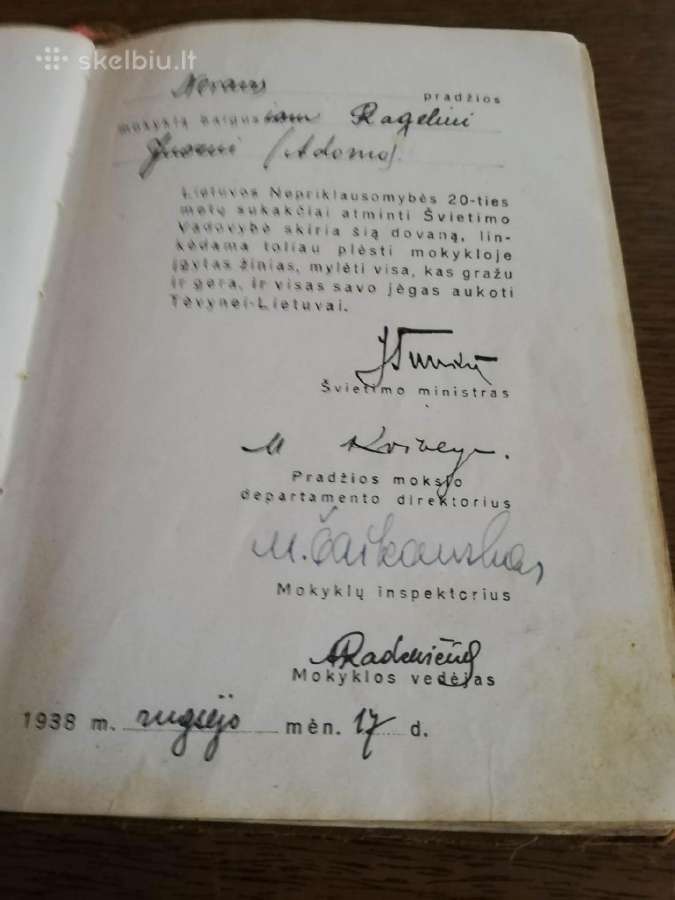 skelbiu.lt
pradžios
mokyklą baigusiam Rageliui
(Adomo).
Lietuvos Nepriklausomybės 20-ties
metų sukakčiai atminti Švietimo
Vadovybė skiria šią dovaną, lin-
kėdama toliau plėsti mokykloje
įgytas žinias, mylėti visa, kas gražu
ir gera, ir visas savo jėgas aukoti
Tėvynei-Lietuvai.
Švietimo ministras
M
Pradžios mokslo
departamento direktorius
M. Čaikauskas
Mokyklų inspektorius
Radevičius
Mokyklos vedėjas
1938 m. rugsėjo mėn. 17 d.